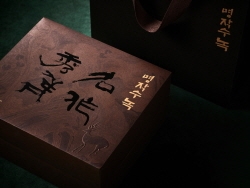 名作
명작수녹
명작수녹